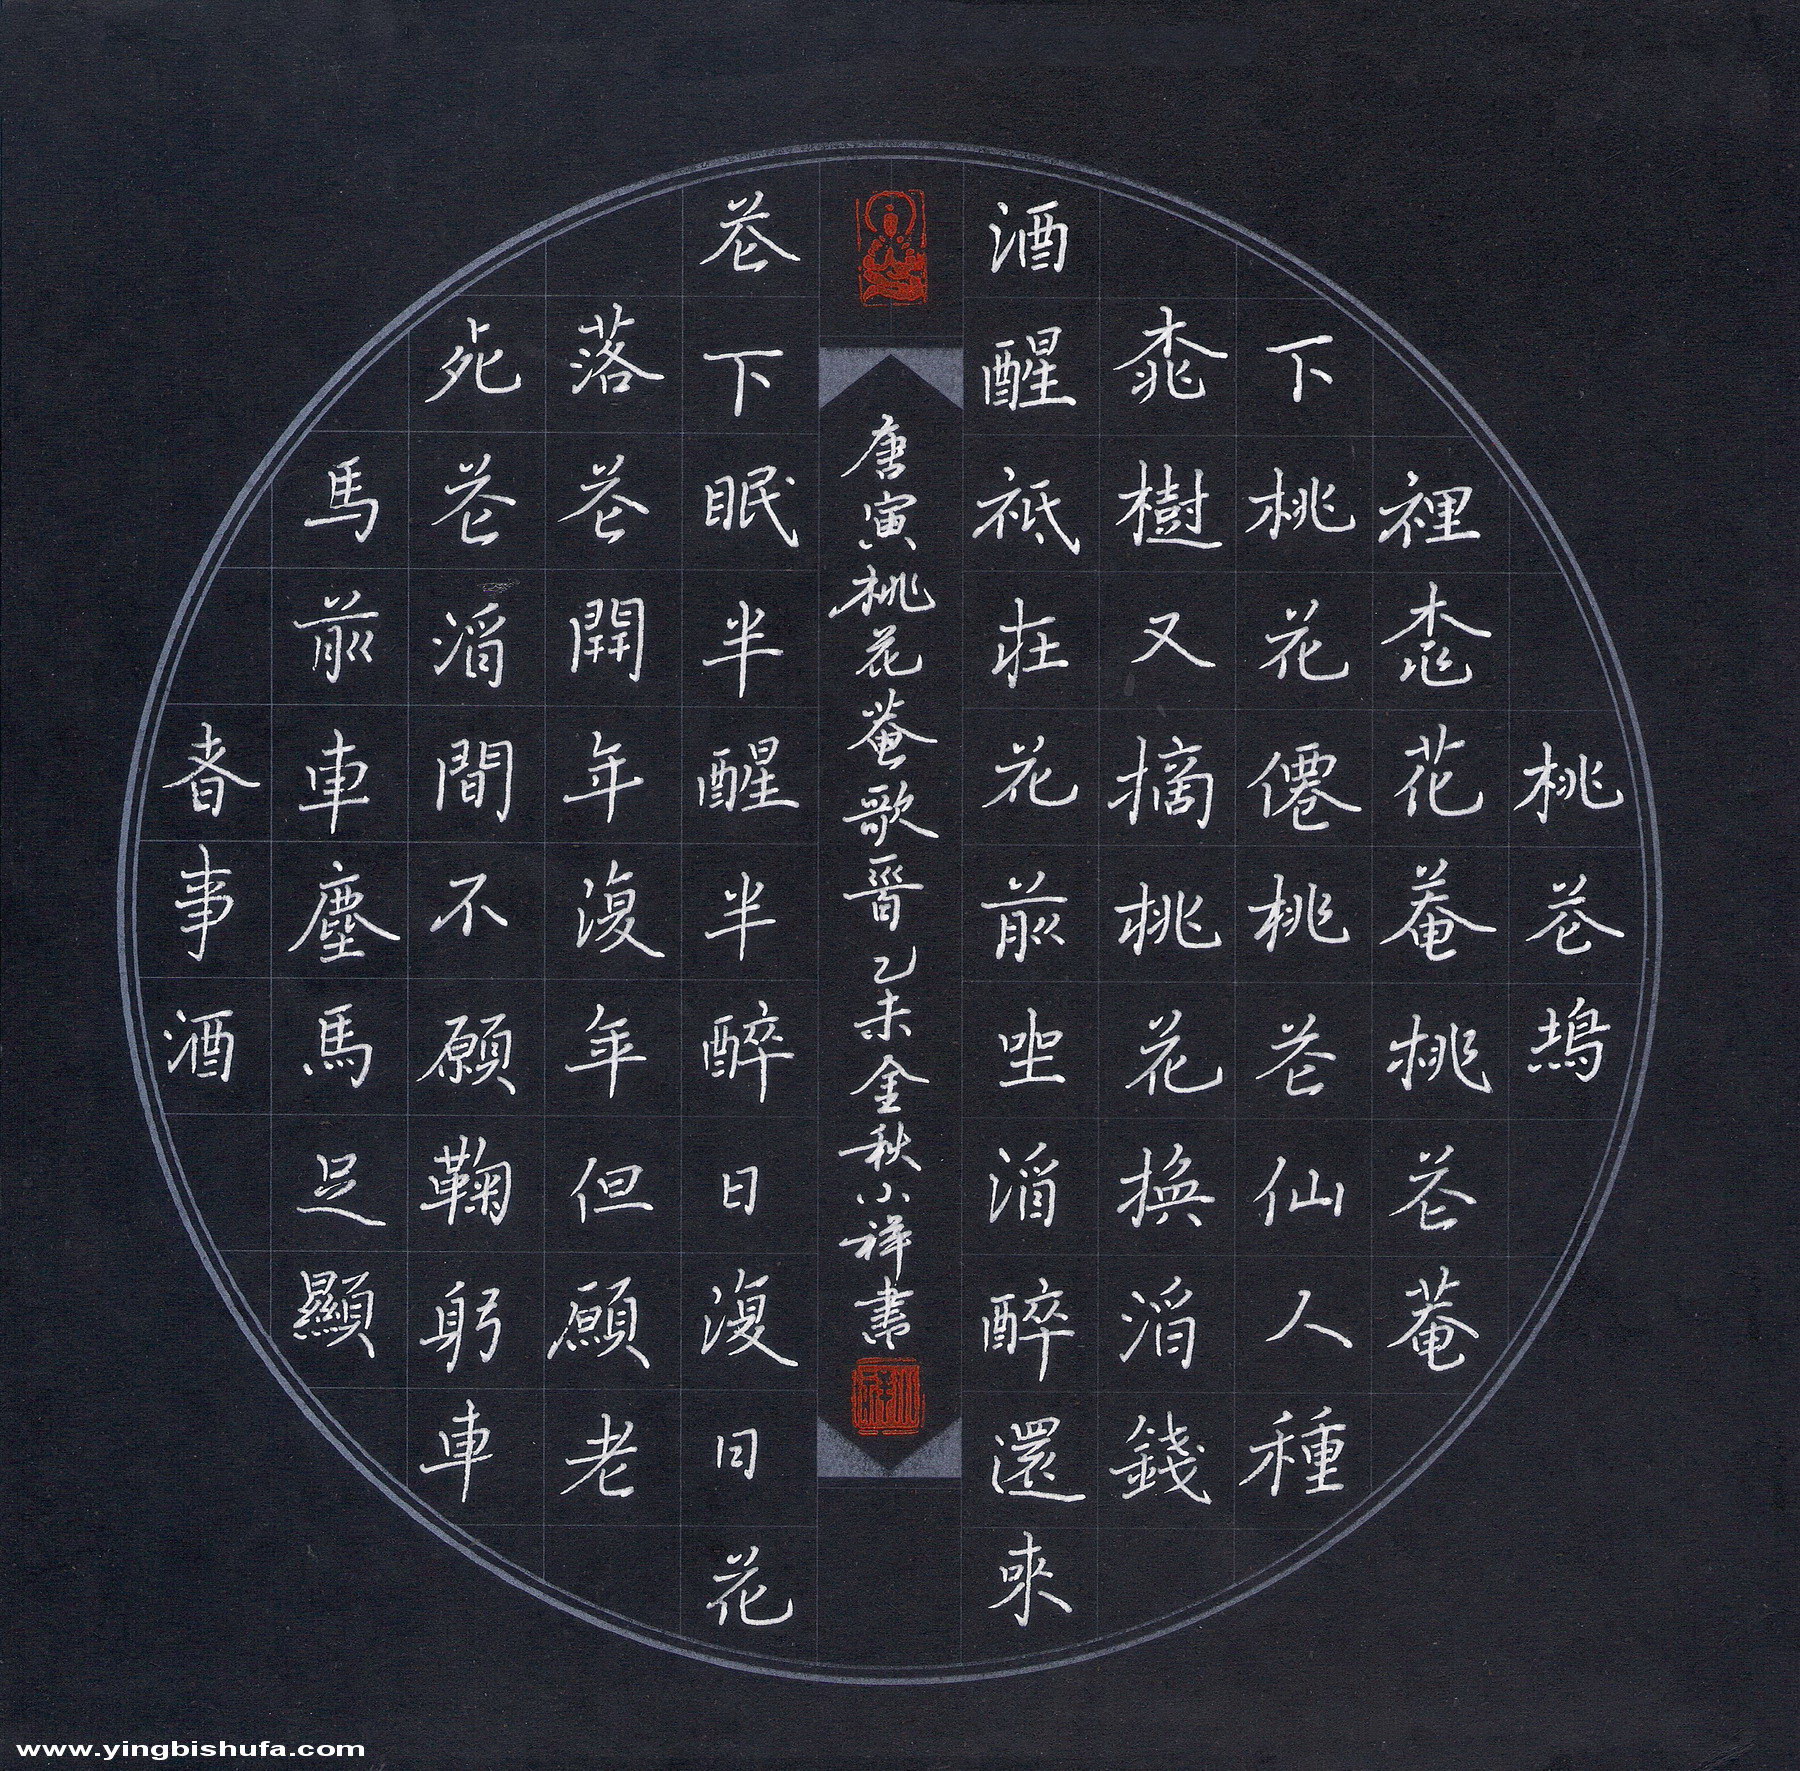 桃花塢
裡桃花菴桃花菴
下桃花僊桃花仙人種
桃樹又摘桃花換酒錢
酒醒祇在花前坐酒醉還來
唐寅桃花菴歌一首乙未金秋小祥書
小祥
花下眠半醒半醉日復日花
落花開年復年但願老
死花酒間不願鞠躬車
馬前車塵馬足顯
者事酒
www.yingbishufa.com